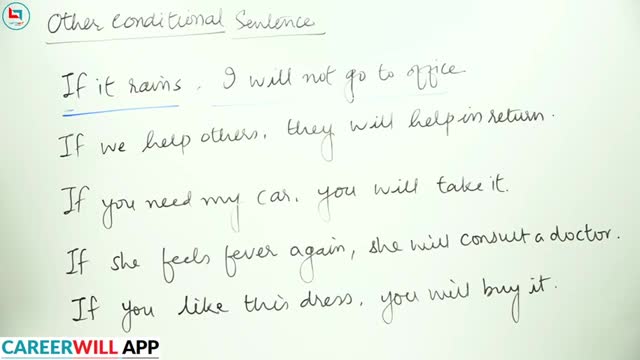 Other Conditional Sentence
If it rains, I will not go to office
If we help others, they will help in return.
If you need my car, you will take it.
If she feels fever again, she will consult a doctor.
If you like this dress, you will buy it.
CAREERWILL APP